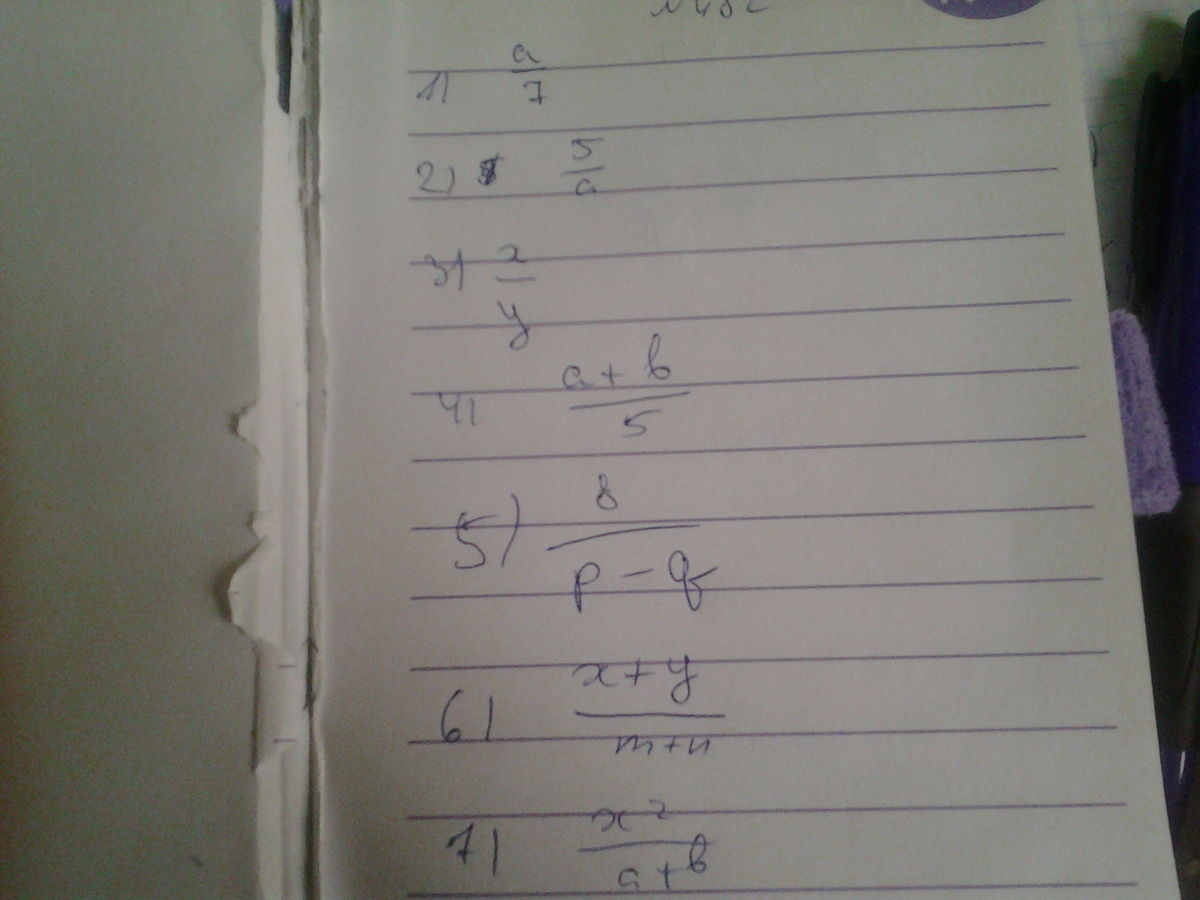 1) a/7
2) 5/a
3) x/y
4) a+b/5
5) 8/p-q
6) x+y/m+n
7) x²/a+b